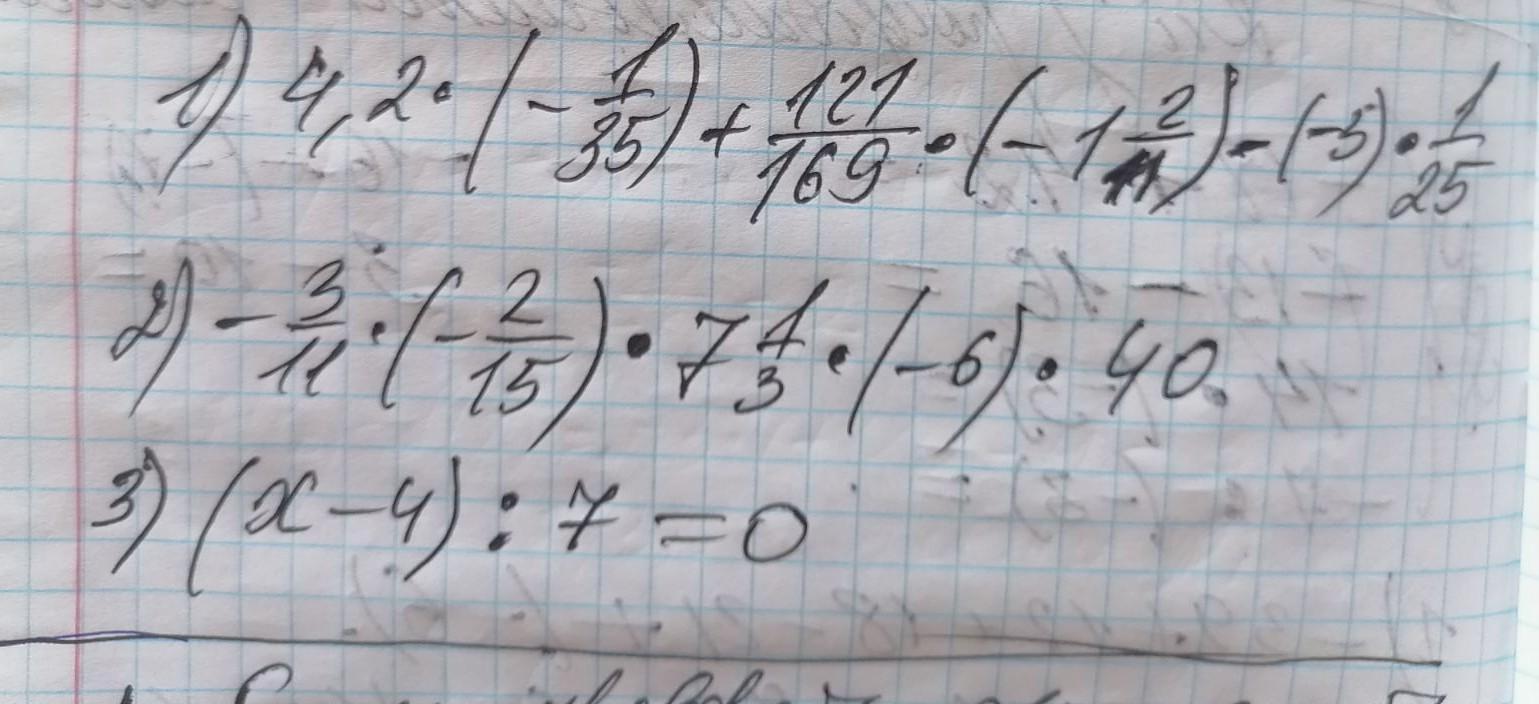 1) 4,2 · (-1/35) + 121/169 · (-1 2/11) - (-5) · 1/25
2) - 3/11 · (- 2/15) · 7 1/3 · (-6) · 40.
3) (x-4) : 7 = 0